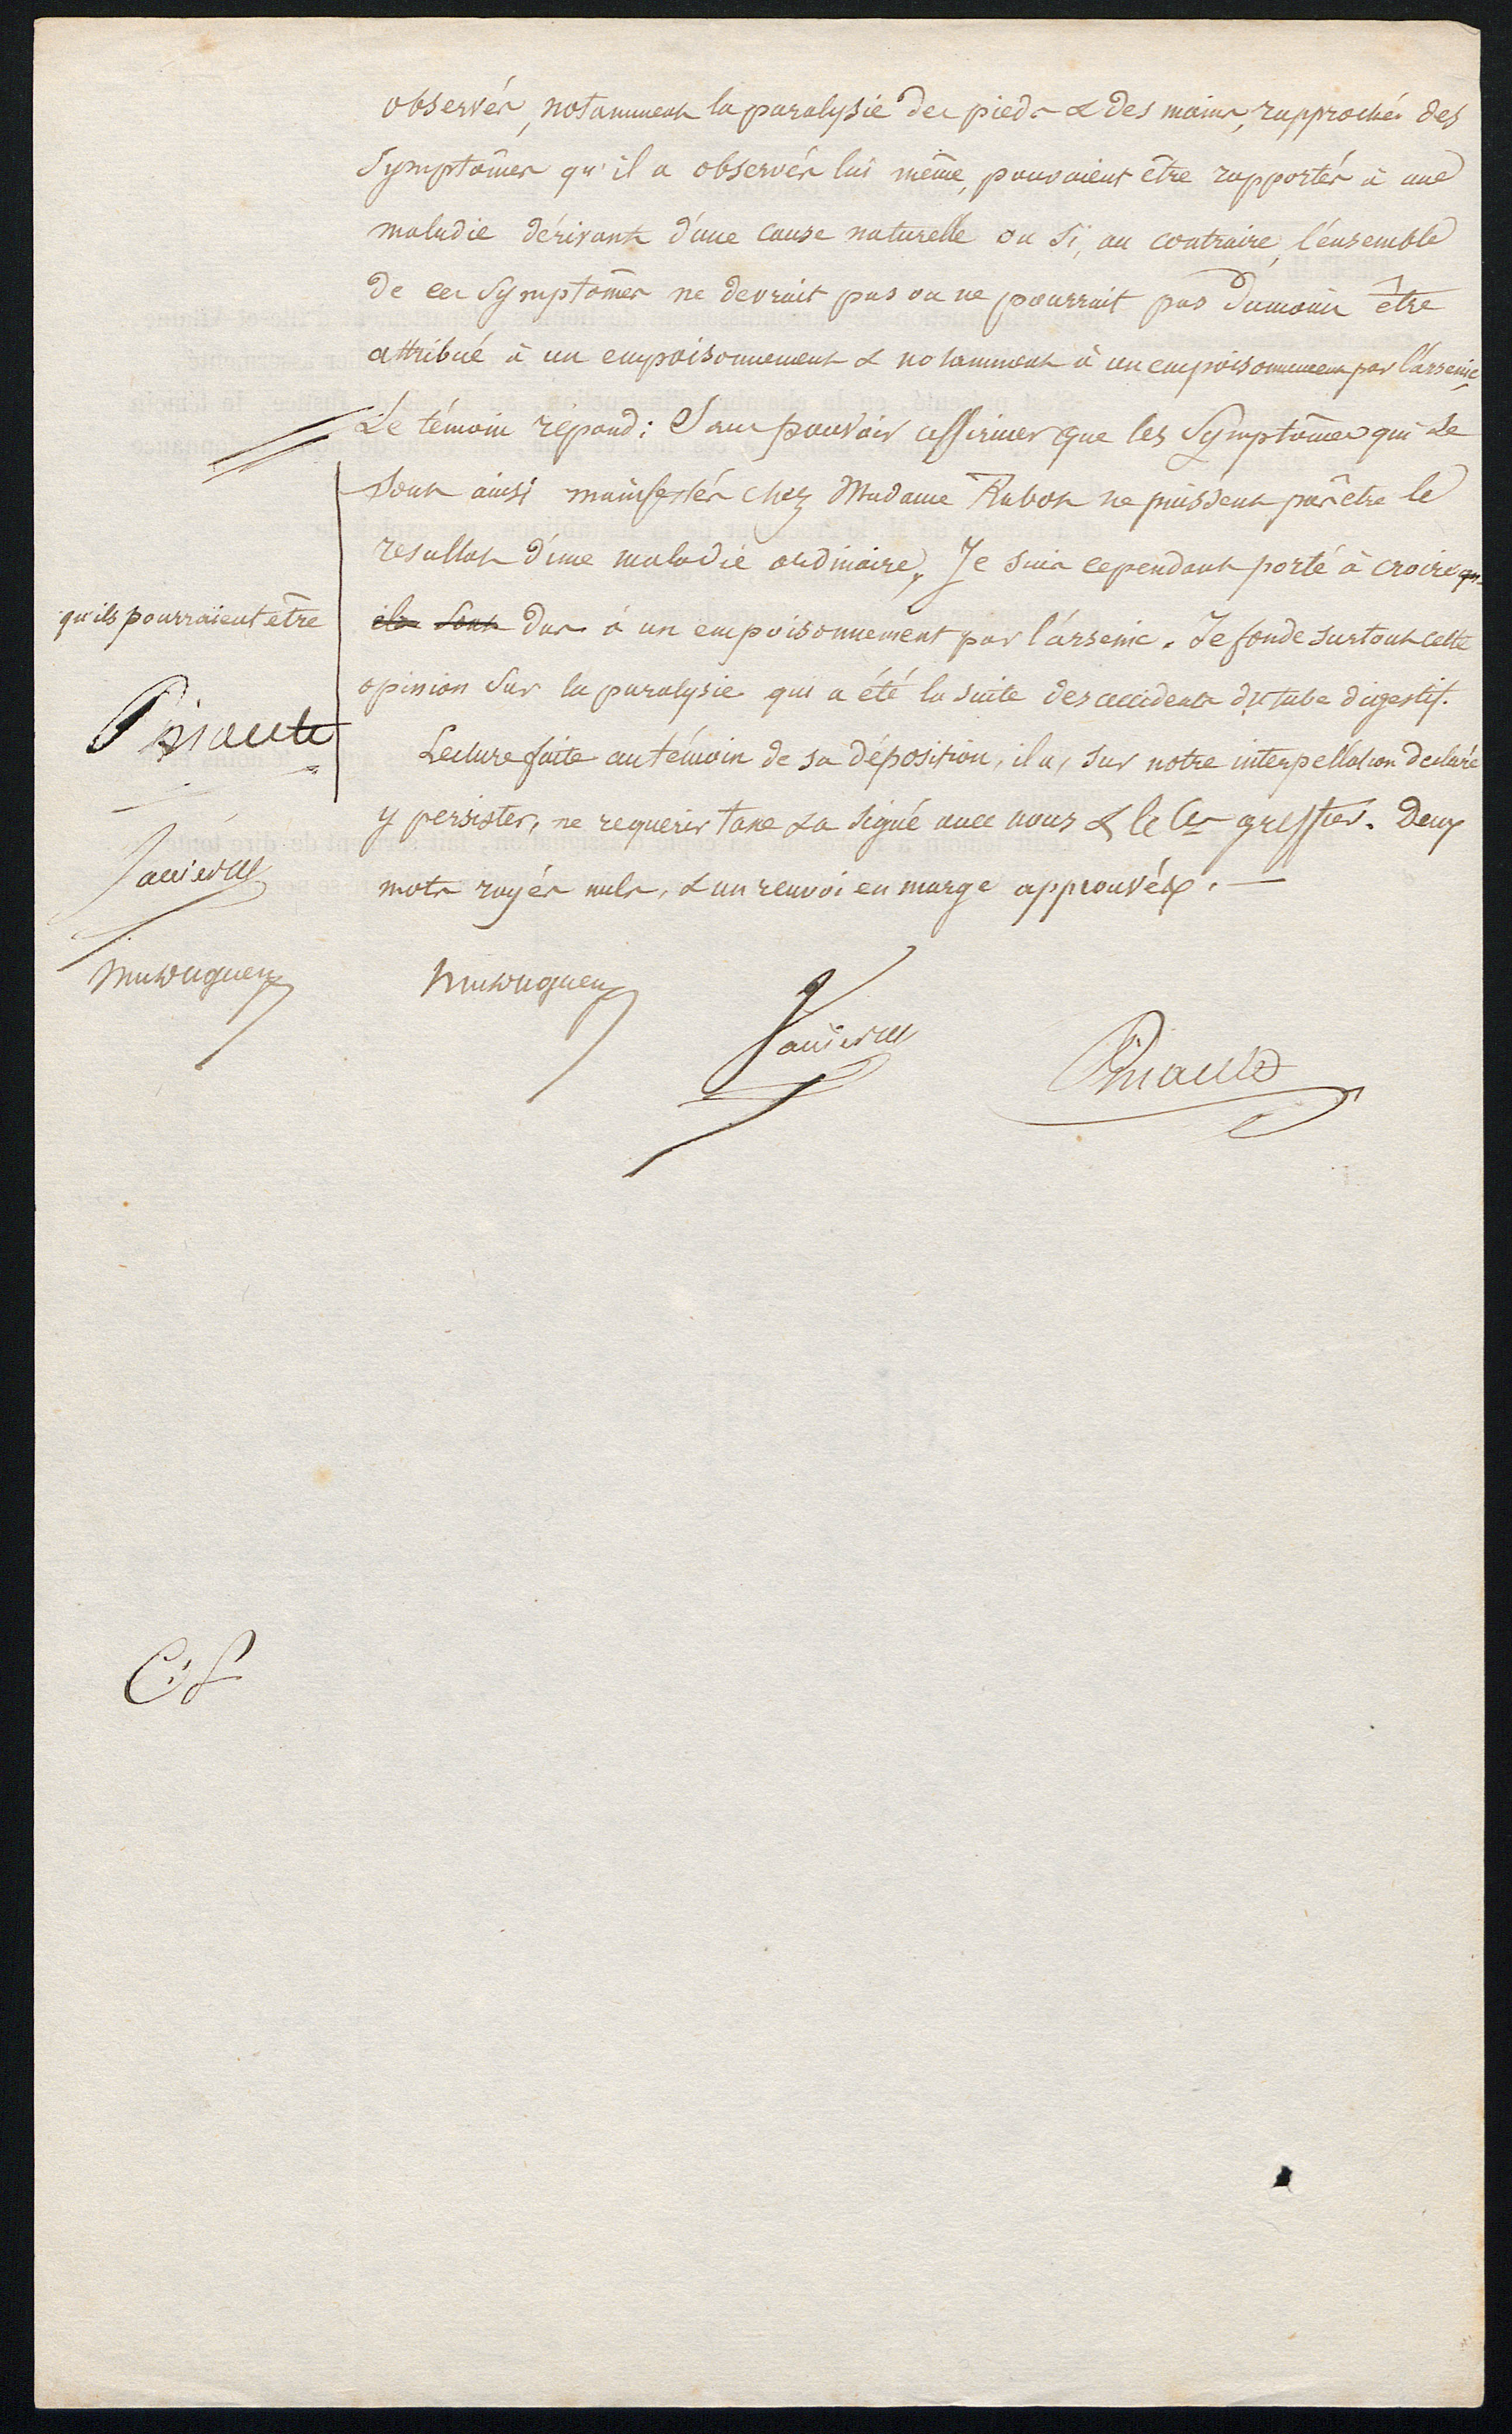 observés, notamment la paralysie des pieds & des mains, rapprochés des
symptômes qu'il a observés lui même, pouvaient être rapportés à une
maladie dérivant d'une cause naturelle ou si, au contraire, l'ensemble
de ces symptômes ne devrait pas ou ne pourrait pas dumoins être
attribué à un empoisonnement & notamment à un empoisonnement par l'arsenic,
Le témoin répond: Sans pouvoir affirmer que les symptômes qui se
sont ainsi manifestés chez Madame Rabot ne puissent pas être le
resultat d'une maladie ordinaire, Je suis cependant porté à croire qu
qu'ils pourraient être
ils sont dus à un empoisonnement par l'arsenic. Je fonde surtout cette
opinion sur la paralysie qui a été la suite des accidents du tube digestif.
Pinault
Lecture faite au témoin de sa déposition, il a, sur notre interpellation declaré
y persister, ne requerir taxe & a signé avec nous & le Cis greffier. Deux
mots rayés nuls, & un renvoi en marge approuvés. —
Pinault